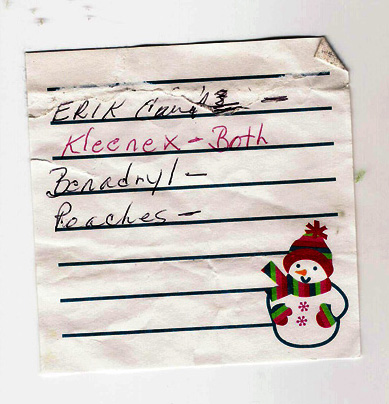 ERIK
Kleenex - Both
Benadryl -
Roaches -